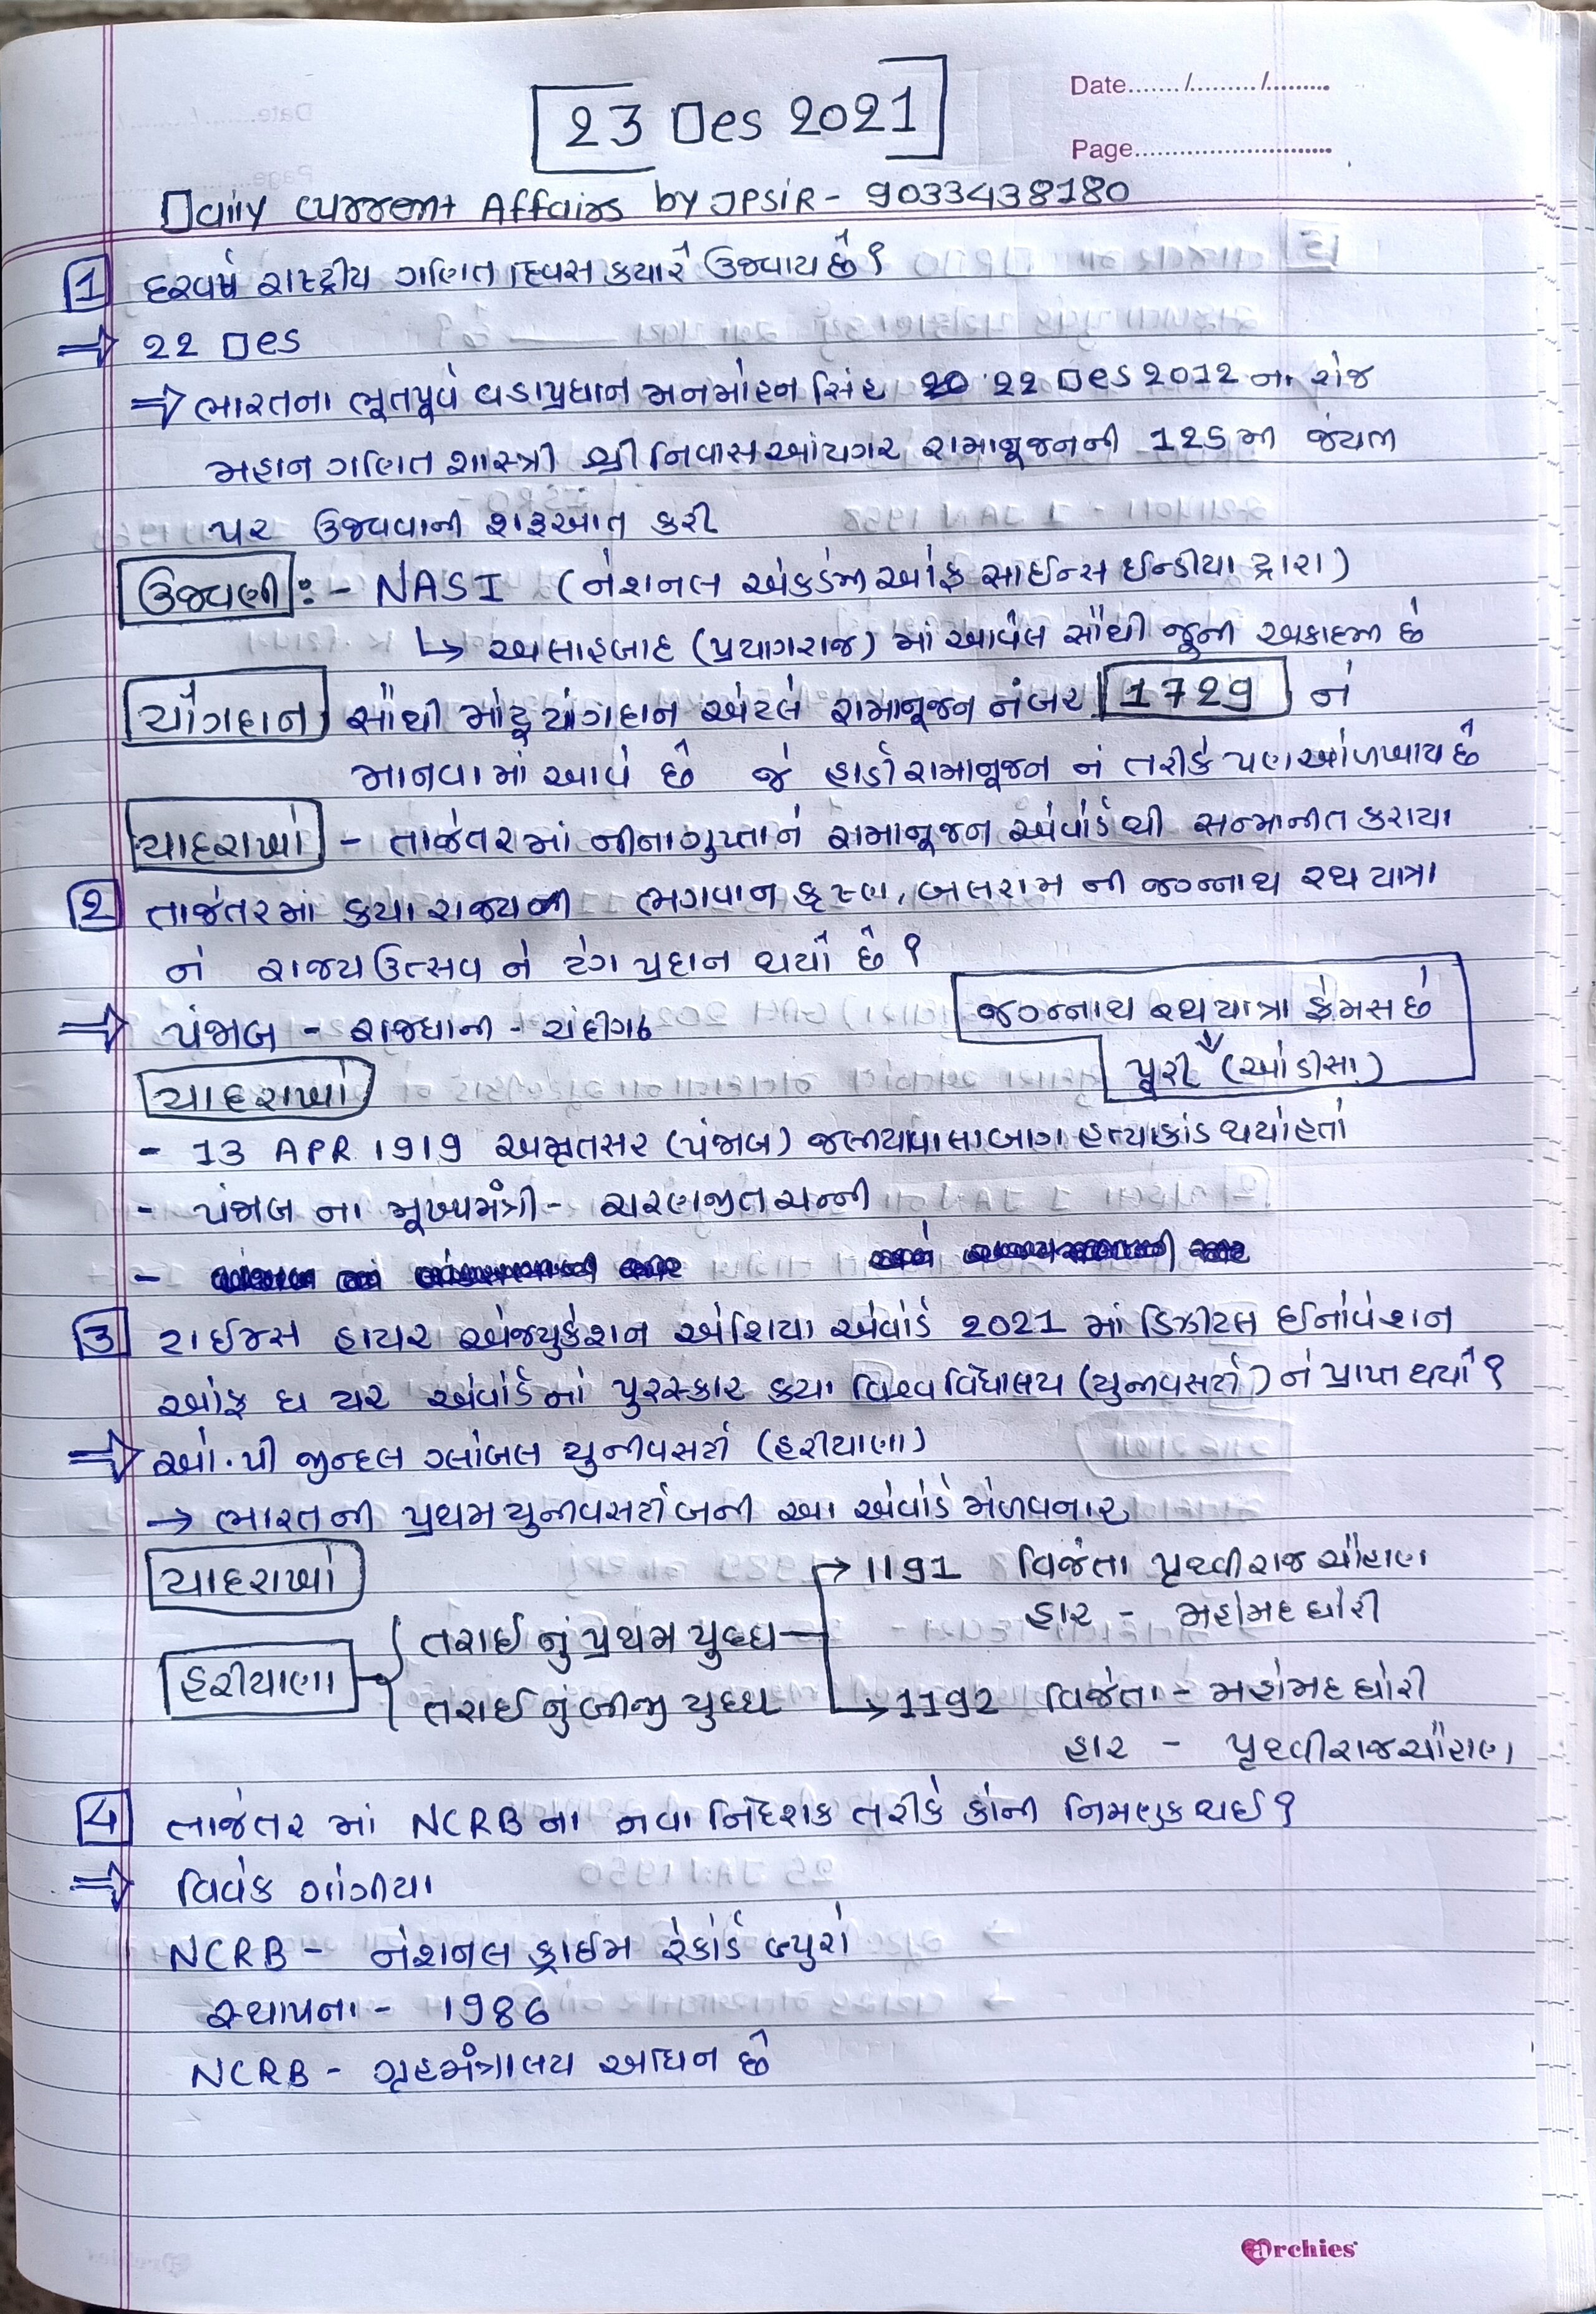 Date......./........./.........
Page.............................
23 Des 2021
Daily current Affairs by JPSIR - 9033438180
1 દરવર્ષે રાષ્ટ્રીય ગણિત દિવસ કયારે ઉજવાય છે ?
⇒ 22 Des
⇒ ભારતના ભૂતપૂર્વ વડાપ્રધાન મનમોહન સિંહ 22 Des 2012 ના રોજ
મહાન ગણિત શાસ્ત્રી શ્રી નિવાસ આયંગર રામાનૂજનની 125 મી જંયતી
પર ઉજવવાની શરૂઆત કરી
ઉજવણી :- NASI (નેશનલ એકડેમી ઓફ સાઈન્સ ઈન્ડીયા દ્વારા)
↳ અલાહબાદ (પ્રયાગરાજ) માં આવેલ સૌથી જૂની અકાદમી છે
યોગદાન સૌથી મોટૂ યોગદાન એટલે રામાનૂજન નંબર 1729 ને
માનવામાં આવે છે જે હાર્ડી રામાનૂજન નં તરીકે પણ ઓળખાય છે
યાદરાખો - તાજેતરમાં નીના ગુપ્તાને રામાનૂજન એવોર્ડ થી સન્માનીત કરાયા
2 તાજેતરમાં કયા રાજ્યની ભગવાન કૃષ્ણ, બલરામ ની જગન્નાથ રથ યાત્રા
ને રાજ્ય ઉત્સવ નો ટેગ પ્રદાન થયો છે ?
⇒ પંજાબ - રાજધાની - ચંદીગઢ
જગન્નાથ રથયાત્રા ફેમસ છે
પૂરી (ઓડીસા)
યાદરાખો
- 13 APR 1919 અમૃતસર (પંજાબ) જલીયાવાલાબાગ હત્યાકાંડ થયો હતો
- પંજાબ ના મૂખ્યમંત્રી - ચરણજીત ચન્ની
3 ટાઈમ્સ હાયર એજ્યુકેશન એશિયા એવોર્ડ 2021 માં ડિઝીટલ ઈનોવેશન
ઓફ ધ યર એવોર્ડ નો પુરસ્કાર કયા વિશ્વ વિધાલય (યુનીવર્સટી) ને પ્રાપ્ત થયો ?
⇒ ઓ.પી જીન્દલ ગ્લોબલ યુનીવર્સટી (હરીયાણા)
→ ભારતની પ્રથમ યુનીવર્સટી બની આ એવોર્ડ મેળવનાર
યાદરાખો
→ 1191 વિજેતા પૃથ્વીરાજ ચૌહાણ
હાર - મહોમદ ઘોરી
હરીયાણા તરાઈ નું પ્રથમ યુધ્ધ
તરાઈ નું બીજી યુધ્ધ → 1192 વિજેતા - મહોમદ ઘોરી
હાર - પૃથ્વીરાજ ચૌહાણ
4 તાજેતર માં NCRB ના નવા નિર્દેશક તરીકે કોની નિમણુક થઈ ?
⇒ વિવેક ગોગીયા
NCRB - નેશનલ ક્રાઈમ રેકોર્ડ બ્યુરો
સ્થાપના - 1986
NCRB - ગૃહમંત્રાલય આધિન છે
archies